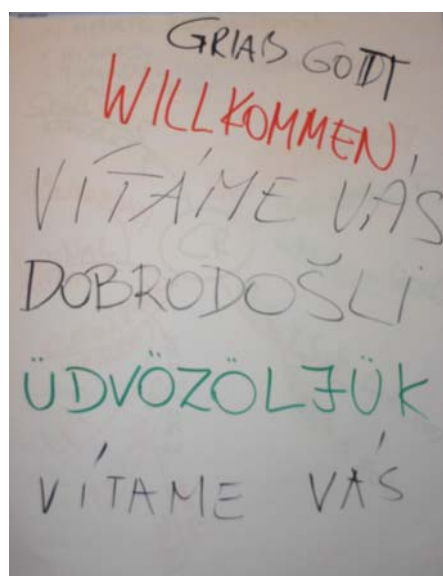 GRIAß GODT
WILLKOMMEN
VÍTÁME VÁS
DOBRODOŠLI
ÜDVÖZÖLJÜK
VÍTAME VÁS